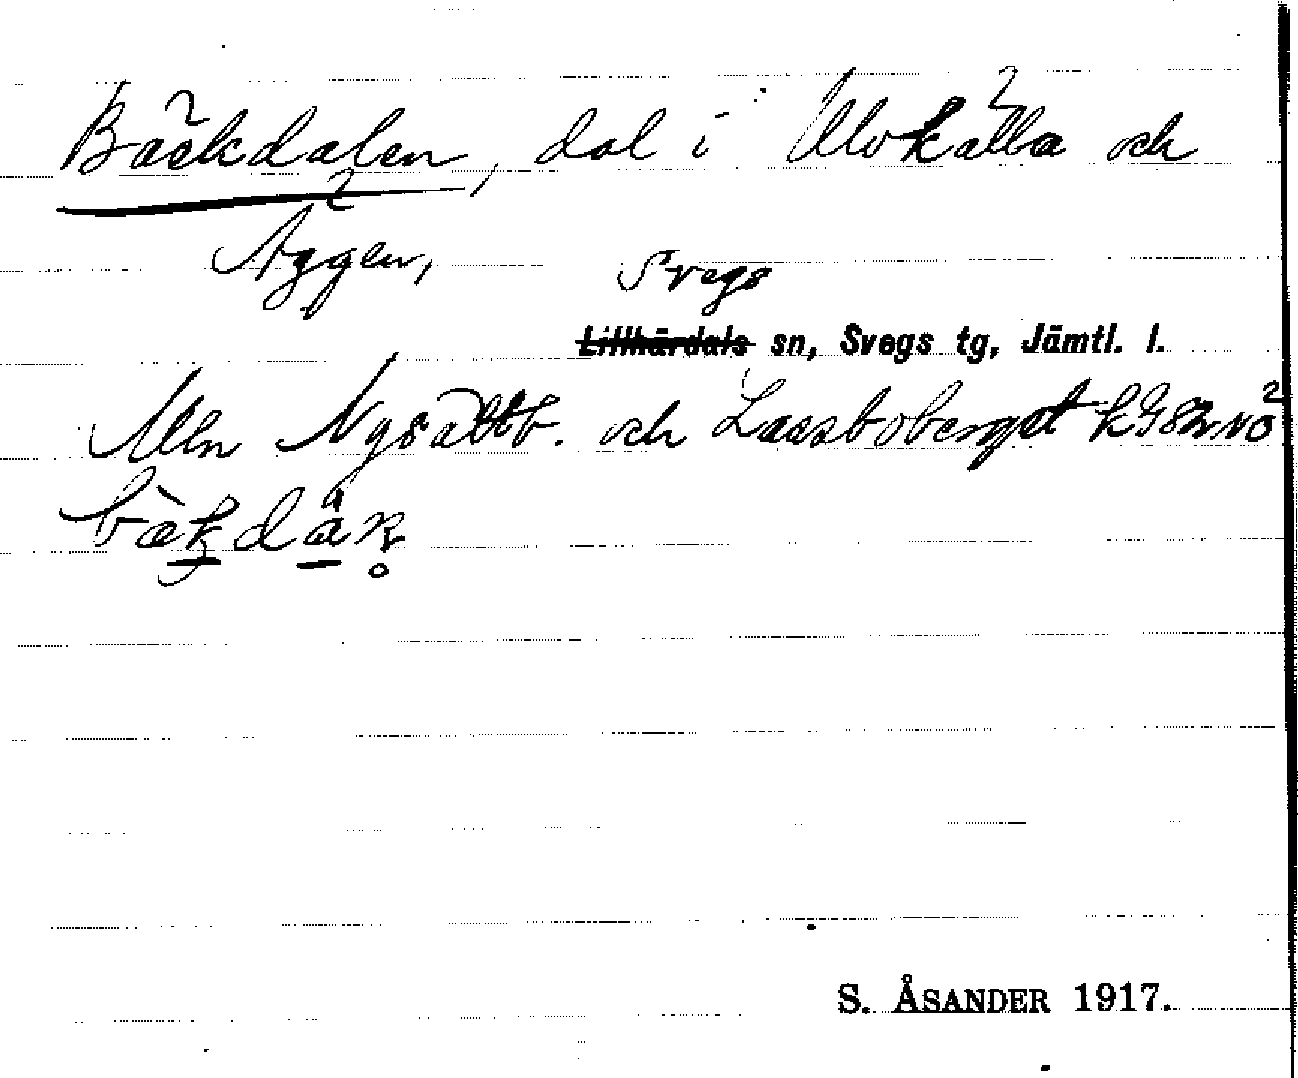 Bäckdalen, dal i Ulvkälla och
Äggen,
Svegs
Lillhärdals sn, Svegs tg, Jämtl. l.
Mln Nysättb. och Lassboberget
S. ÅSANDER 1917.